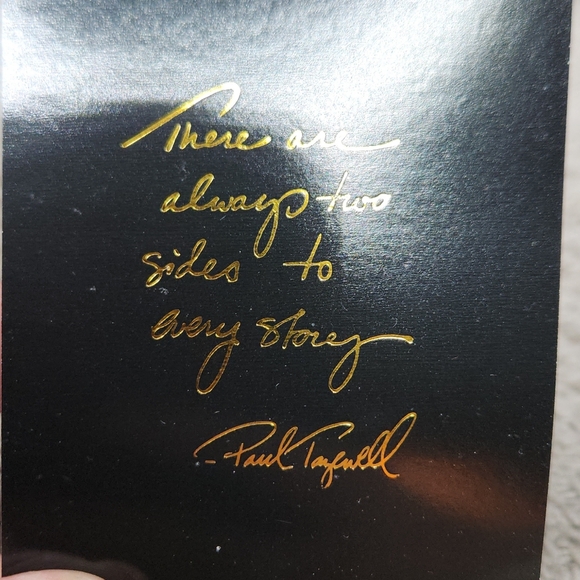 There are
always two
sides to
every story
- Paul Tazewell